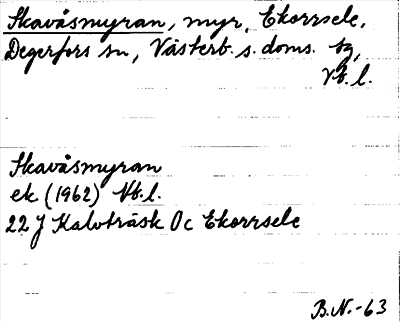 Skavåsmyran, myr, Ekorrsele,
Degerfors sn, Västerb. s. doms. tg,
Vb. l.
Skavåsmyran
ek (1962) Vb. l.
22 J Kalvträsk Oc Ekorrsele
B.N.-63